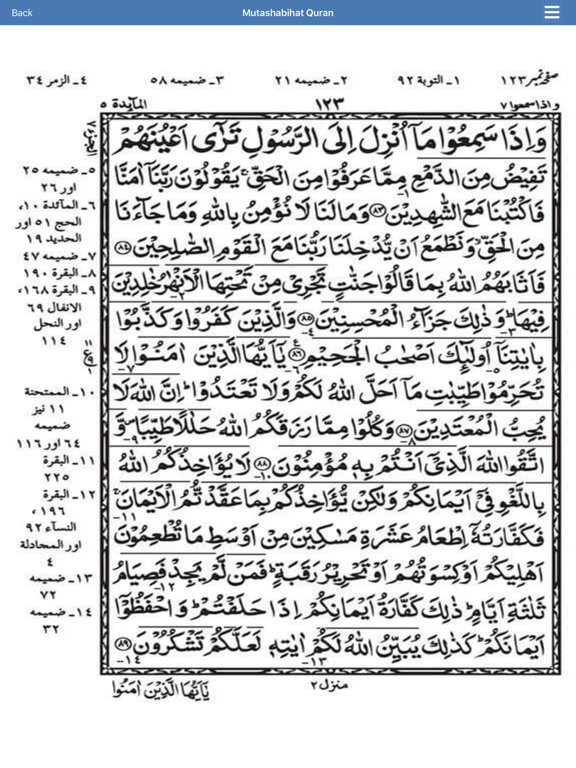 Back
Mutashabihat Quran
صفحہ نمبر ۱۲۳
۱ـ التوبة ۹۲
۲ـ ضمیمه ۲۱
۳ـ ضمیمه ۵۸
۴ـ الزمر ۳۴
و اذا سمعوا ۷
۱۲۳
المآیدة ۵
وَاِذَا سَمِعُوْا مَآ اُنْزِلَ اِلَى الرَّسُوْلِ تَرٰٓى اَعْيُنَهُمْ
تَفِيْضُ مِنَ الدَّمْعِ مِمَّا عَرَفُوْا مِنَ الْحَقِّ ۚ يَقُوْلُوْنَ رَبَّنَآ اٰمَنَّا
فَاكْتُبْنَا مَعَ الشّٰهِدِيْنَ ﴿۸۳﴾ وَمَا لَنَا لَا نُؤْمِنُ بِاللّٰهِ وَمَا جَآءَنَا
مِنَ الْحَقِّ ۙ وَنَطْمَعُ اَنْ يُّدْخِلَنَا رَبُّنَا مَعَ الْقَوْمِ الصّٰلِحِيْنَ ﴿۸۴﴾
فَاَثَابَهُمُ اللّٰهُ بِمَا قَالُوْا جَنّٰتٍ تَجْرِيْ مِنْ تَحْتِهَا الْاَنْهٰرُ خٰلِدِيْنَ
فِيْهَا ؕ وَذٰلِكَ جَزَآءُ الْمُحْسِنِيْنَ ﴿۸۵﴾ وَالَّذِيْنَ كَفَرُوْا وَكَذَّبُوْا
بِاٰيٰتِنَآ اُولٰٓئِكَ اَصْحٰبُ الْجَحِيْمِ ﴿۸۶﴾ يٰٓاَيُّهَا الَّذِيْنَ اٰمَنُوْا لَا
تُحَرِّمُوْا طَيِّبٰتِ مَآ اَحَلَّ اللّٰهُ لَكُمْ وَلَا تَعْتَدُوْا ؕ اِنَّ اللّٰهَ لَا
يُحِبُّ الْمُعْتَدِيْنَ ﴿۸۷﴾ وَكُلُوْا مِمَّا رَزَقَكُمُ اللّٰهُ حَلٰلًا طَيِّبًا ۪ وَّ
اتَّقُوا اللّٰهَ الَّذِيْٓ اَنْتُمْ بِهٖ مُؤْمِنُوْنَ ﴿۸۸﴾ لَا يُؤَاخِذُكُمُ اللّٰهُ
بِاللَّغْوِ فِيْٓ اَيْمَانِكُمْ وَلٰكِنْ يُّؤَاخِذُكُمْ بِمَا عَقَّدْتُّمُ الْاَيْمَانَ ۚ
فَكَفَّارَتُهٗٓ اِطْعَامُ عَشَرَةِ مَسٰكِيْنَ مِنْ اَوْسَطِ مَا تُطْعِمُوْنَ
اَهْلِيْكُمْ اَوْ كِسْوَتُهُمْ اَوْ تَحْرِيْرُ رَقَبَةٍ ؕ فَمَنْ لَّمْ يَجِدْ فَصِيَامُ
ثَلٰثَةِ اَيَّامٍ ؕ ذٰلِكَ كَفَّارَةُ اَيْمَانِكُمْ اِذَا حَلَفْتُمْ ؕ وَاحْفَظُوْٓا
اَيْمَانَكُمْ ؕ كَذٰلِكَ يُبَيِّنُ اللّٰهُ لَكُمْ اٰيٰتِهٖ لَعَلَّكُمْ تَشْكُرُوْنَ ﴿۸۹﴾
۵ـ ضمیمه ۲۵
اور ۲۶
۶ـ المآئدة ۱۰،
الحج ۵۱ اور
الحدید ۱۹
۷ـ ضمیمه ۴۷
۸ـ البقرة ۱۹۰
۹ـ البقرة ۱۶۸،
الانفال ۶۹
اور النحل
۱۱۴
۱۰ـ الممتحنة
۱۱ نیز
ضمیمه
۶۴ اور ۱۱۶
۱۱ـ البقرة
۲۲۵
۱۲ـ البقرة
۱۹۶،
النسآء ۹۲
اور المجادلة
۴
۱۳ـ ضمیمه
۷۲
۱۴ـ ضمیمه
۳۲
منزل ۲
يٰٓاَيُّهَا الَّذِيْنَ اٰمَنُوْا